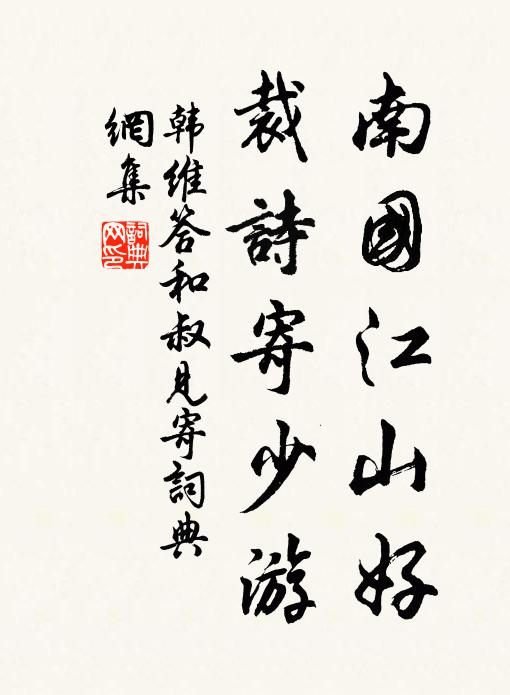 南國江山好
裁詩寄少游
韩维答和叔見寄詞典
網集
詞典
网印